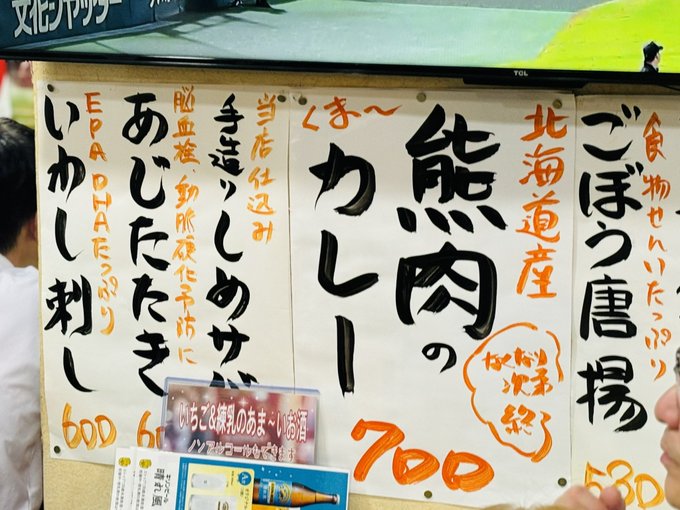 文化シヤッター
TCL
食物せんいたっぷり
ごぼう唐揚
530
北海道産
熊肉の
カレー
くま〜
なくなり
次第
終了
700
当店仕込み
手造りしめサバ
脳血栓、動脈硬化予防に
あじたたき
EPA DHAたっぷり
いわし刺し
600
いちご&練乳のあま〜いお酒
ノンアルコールもできます
晴れ風